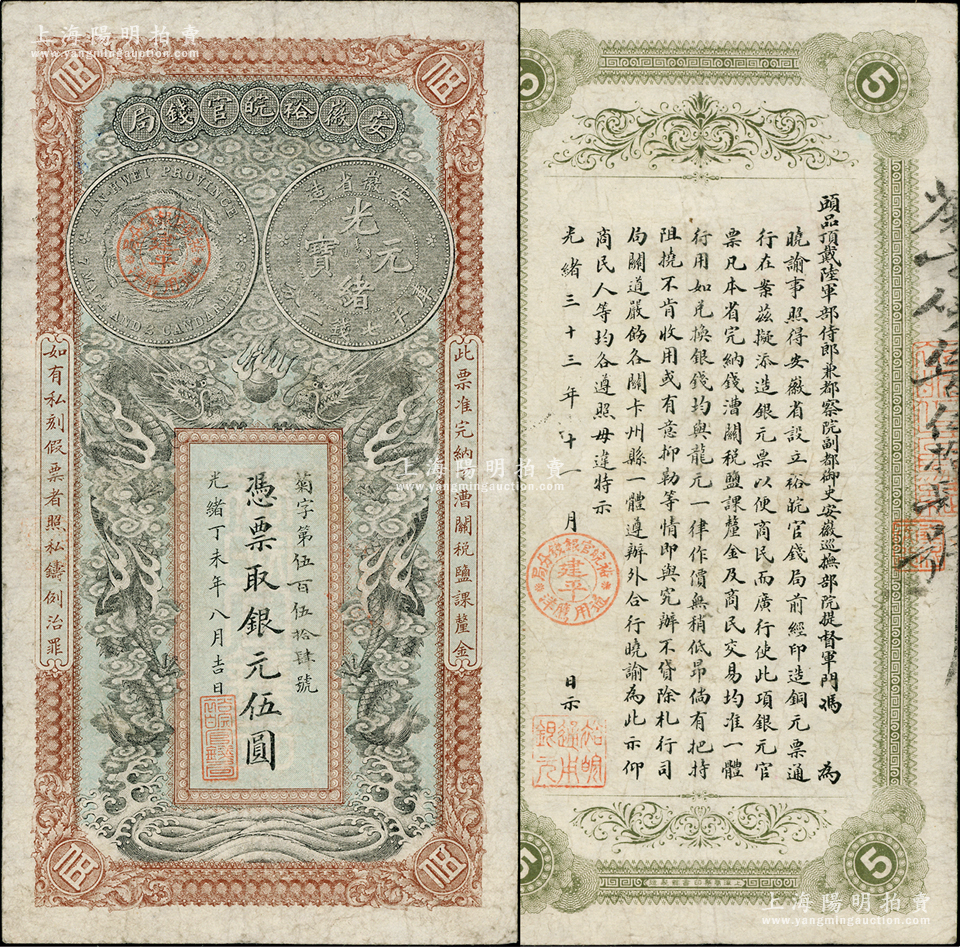 上海陽明拍賣
www.yangmingauction.com
伍
伍
安徽裕皖官錢局
AN-HWEI PROVINCE
7 MACE AND 2 CANDAREENS
安徽省造
光緒元寶
庫平七錢二分
此票准完納錢漕關稅鹽課釐金
如有私刻假票者照私鑄例治罪
菊字第伍百伍拾肆號
憑票取銀元伍圓
光緒丁未年八月吉日
伍
伍
5
5
頭品頂戴陸軍部侍郎兼都察院副都御史安徽巡撫部院提督軍門馮 為
曉諭事照得安徽省設立裕皖官錢局前經印造銅元票通
行在案茲擬添造銀元票以便商民而廣行使此項銀元官
票凡本省完納錢漕關稅鹽課釐金及商民交易均准一體
行用如兌換銀錢均與龍元一律作價無稍低昂倘有把持
阻撓不肯收用或有意抑勒等情即與究辦不貸除札行司
局關道嚴飭各關卡州縣一體遵辦外合行曉諭為此示仰
商民人等均各遵照毋違特示
光緒三十三年十一月 日示
建平
通用龍洋
裕皖通用銀元
5
5
上海陽明拍賣
www.yangmingauction.com
上海陽明拍賣
www.yangmingauction.com